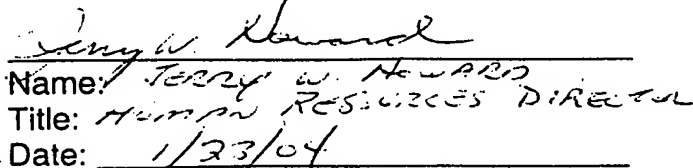 Jerry W. Howard
Name: JERRY W. HOWARD
Title: HUMAN RESOURCES DIRECTOR
Date: 1/23/04